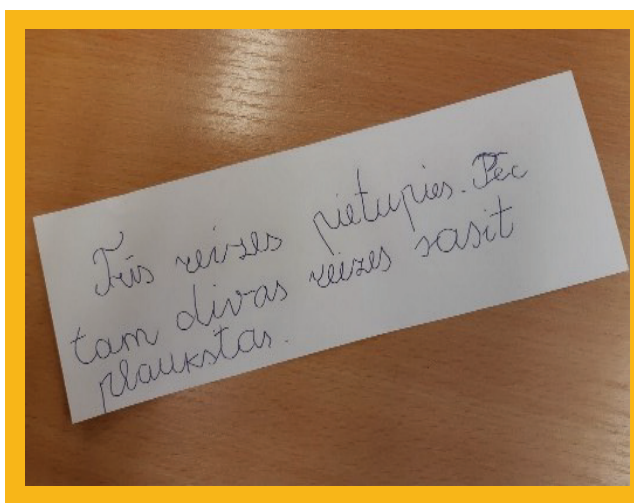 Trīs reizes pietupies. Pēc
tam divas reizes sasit
plaukstas.